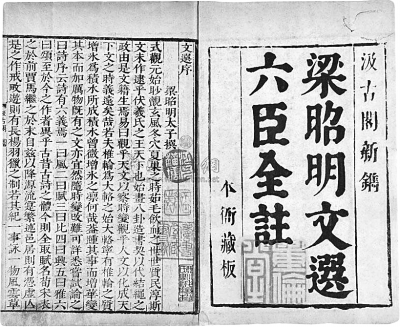 汲古閣新鐫
梁昭明文選
六臣全註
本衙藏板
文選序
梁昭明太子撰
式觀元始眇覿玄風冬穴夏巢之時茹毛飲血之世世質民淳斯
文未作逮乎伏羲氏之王天下也始畫八卦造書契以代結繩之
政由是文籍生焉易曰觀乎天文以察時變觀乎人文以化成天
下文之時義遠矣哉若夫椎輪為大輅之始大輅寧有椎輪之質
增冰為積水所成積水曾微增冰之凜何哉蓋踵其事而增華變
其本而加厲物既有之文亦宜然隨時變改難可詳悉嘗試論之
曰詩序云詩有六義焉一曰風二曰賦三曰比四曰興五曰雅六
曰頌至於今之作者異乎古昔古詩之體今則全取賦名荀宋表
之於前賈馬繼之於末自茲以降源流寔繁述邑居則有憑虛亡
是之作戒畋遊則有長楊羽獵之制若其紀一事詠一物風雲草